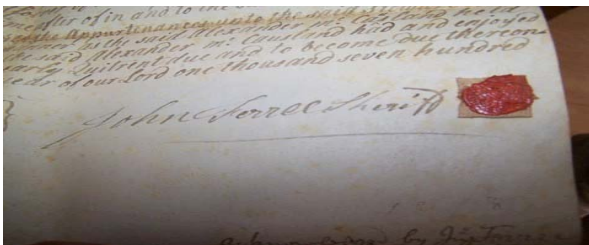 of in and to the
the Appurtenances unto the said
as the said Alexander mc: and held
the said Alexander mc: Causland had and enjoyed
Quitrent due and to become due thereon
of our Lord one thousand seven hundred
John Ferree Sheriff
by